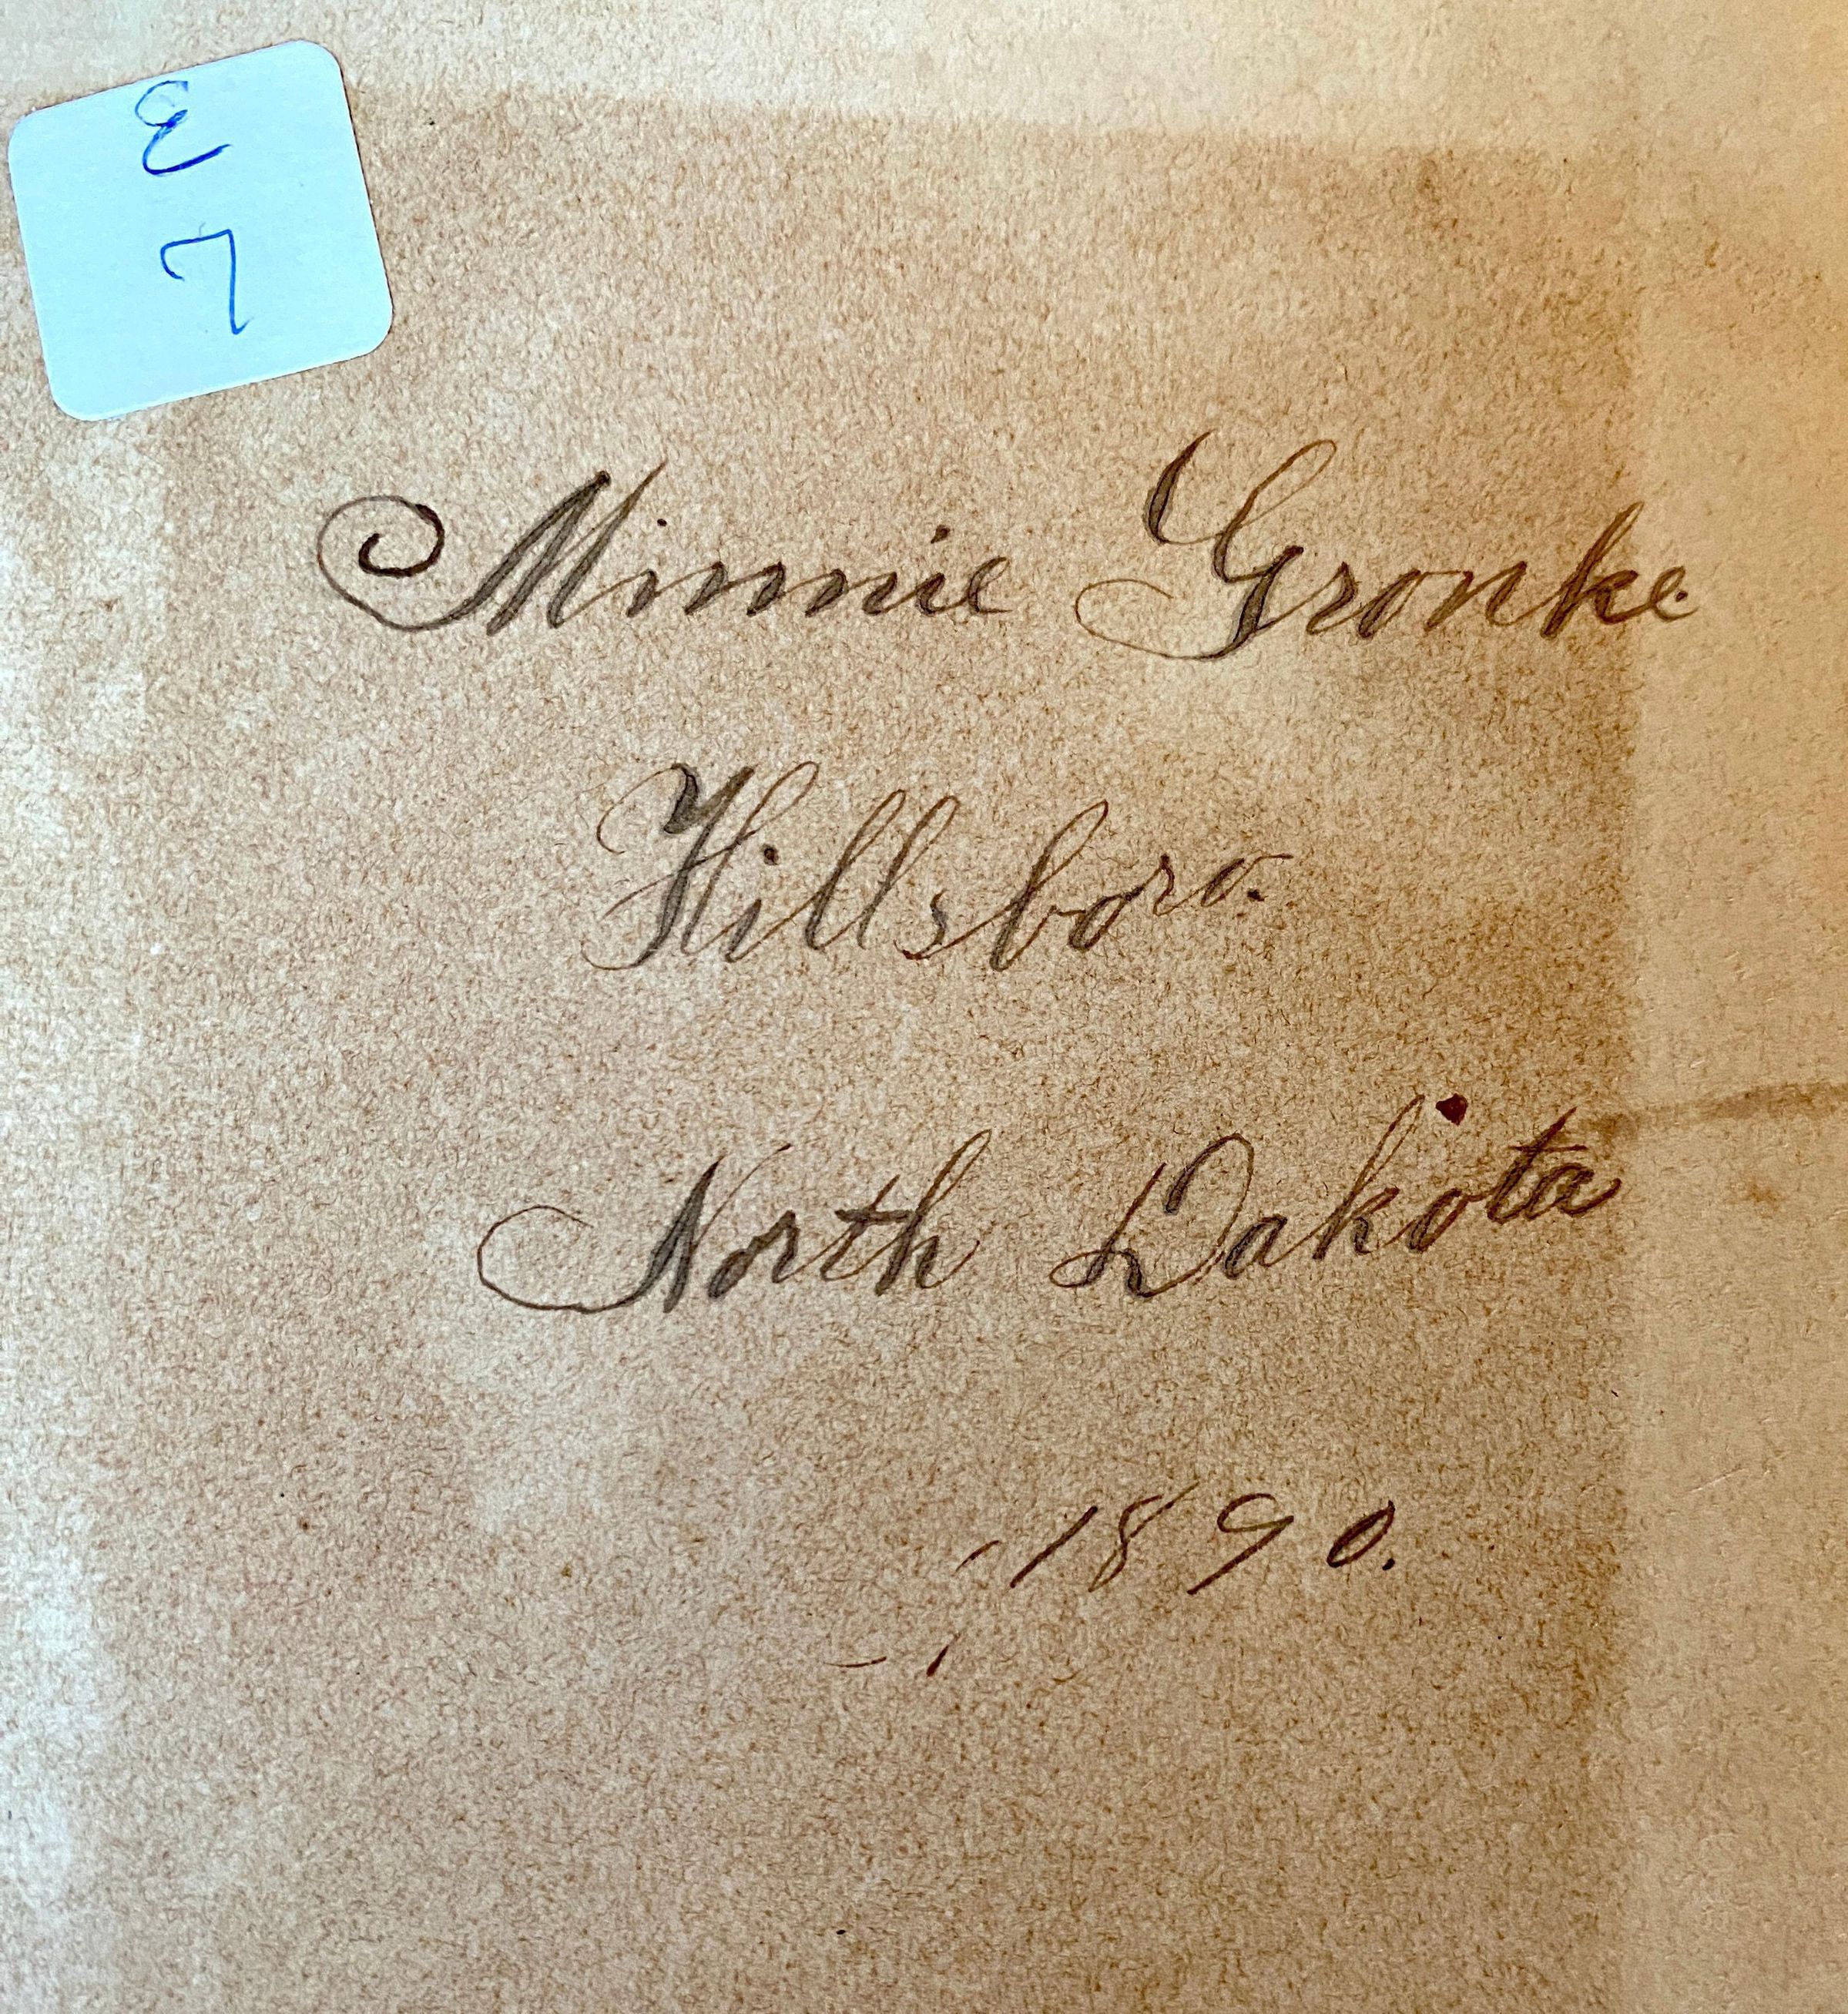 E
7
Minnie Gronke.
Hillsboro.
North Dakota
1890.